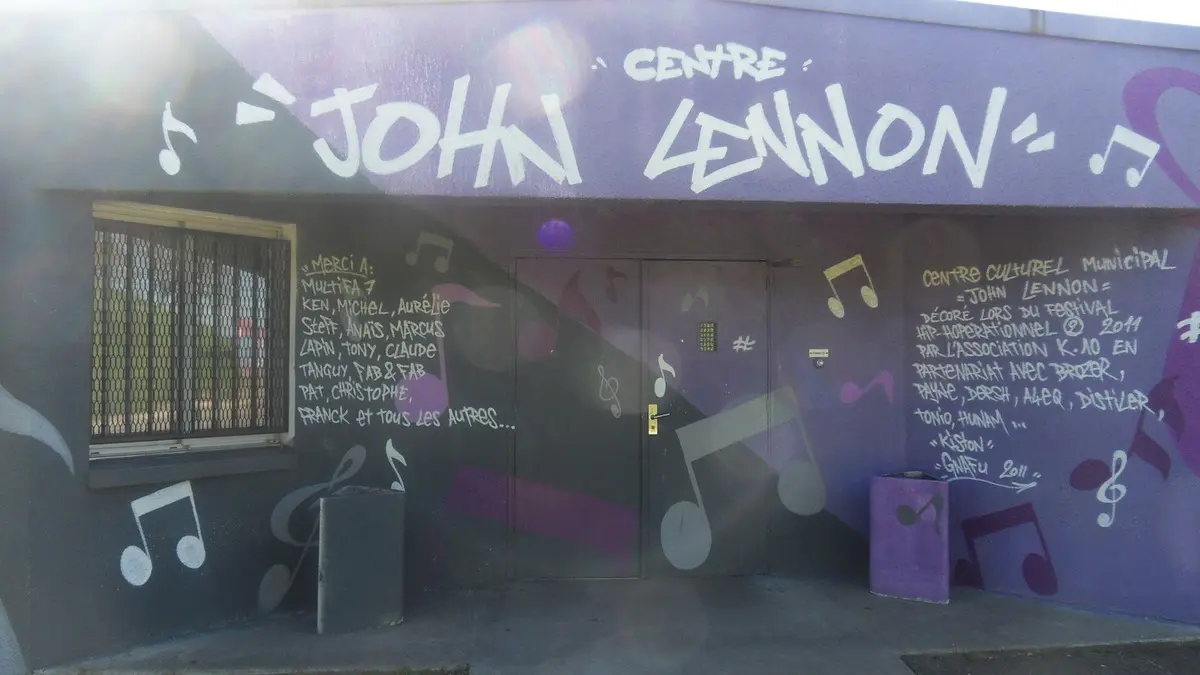 "CENTRE"
"JOHN LENNON"
"MERCI A:
MULTIFA 7
KEN, MICHEL, AURÉLIE
STEFF, ANAÏS, MARCUS
LAPIN, TONY, CLAUDE
TANGUY, FAB & FAB
PAT, CHRISTOPHE,
FRANCK et TOUS LES AUTRES...
#
CENTRE CULTUREL MUNICIPAL
"JOHN LENNON"
DÉCORÉ LORS DU FESTIVAL
HIP-HOPERATIONNEL 2011
PAR L'ASSOCIATION K.10 EN
PARTENARIAT AVEC BROZER,
PAYNE, DERSH, ALEQ, DISTILER,
TONIO, HUNAM ...
"KISTON"
"GNAFU 2011"